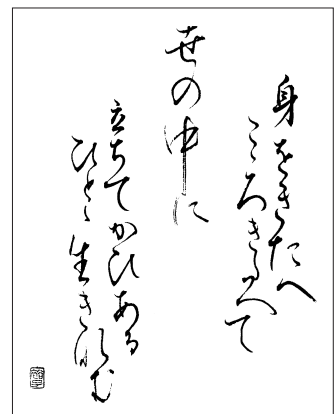 身をきたへ
こころきよめて
世の中に
立ちてかひある
ひとと生きなむ